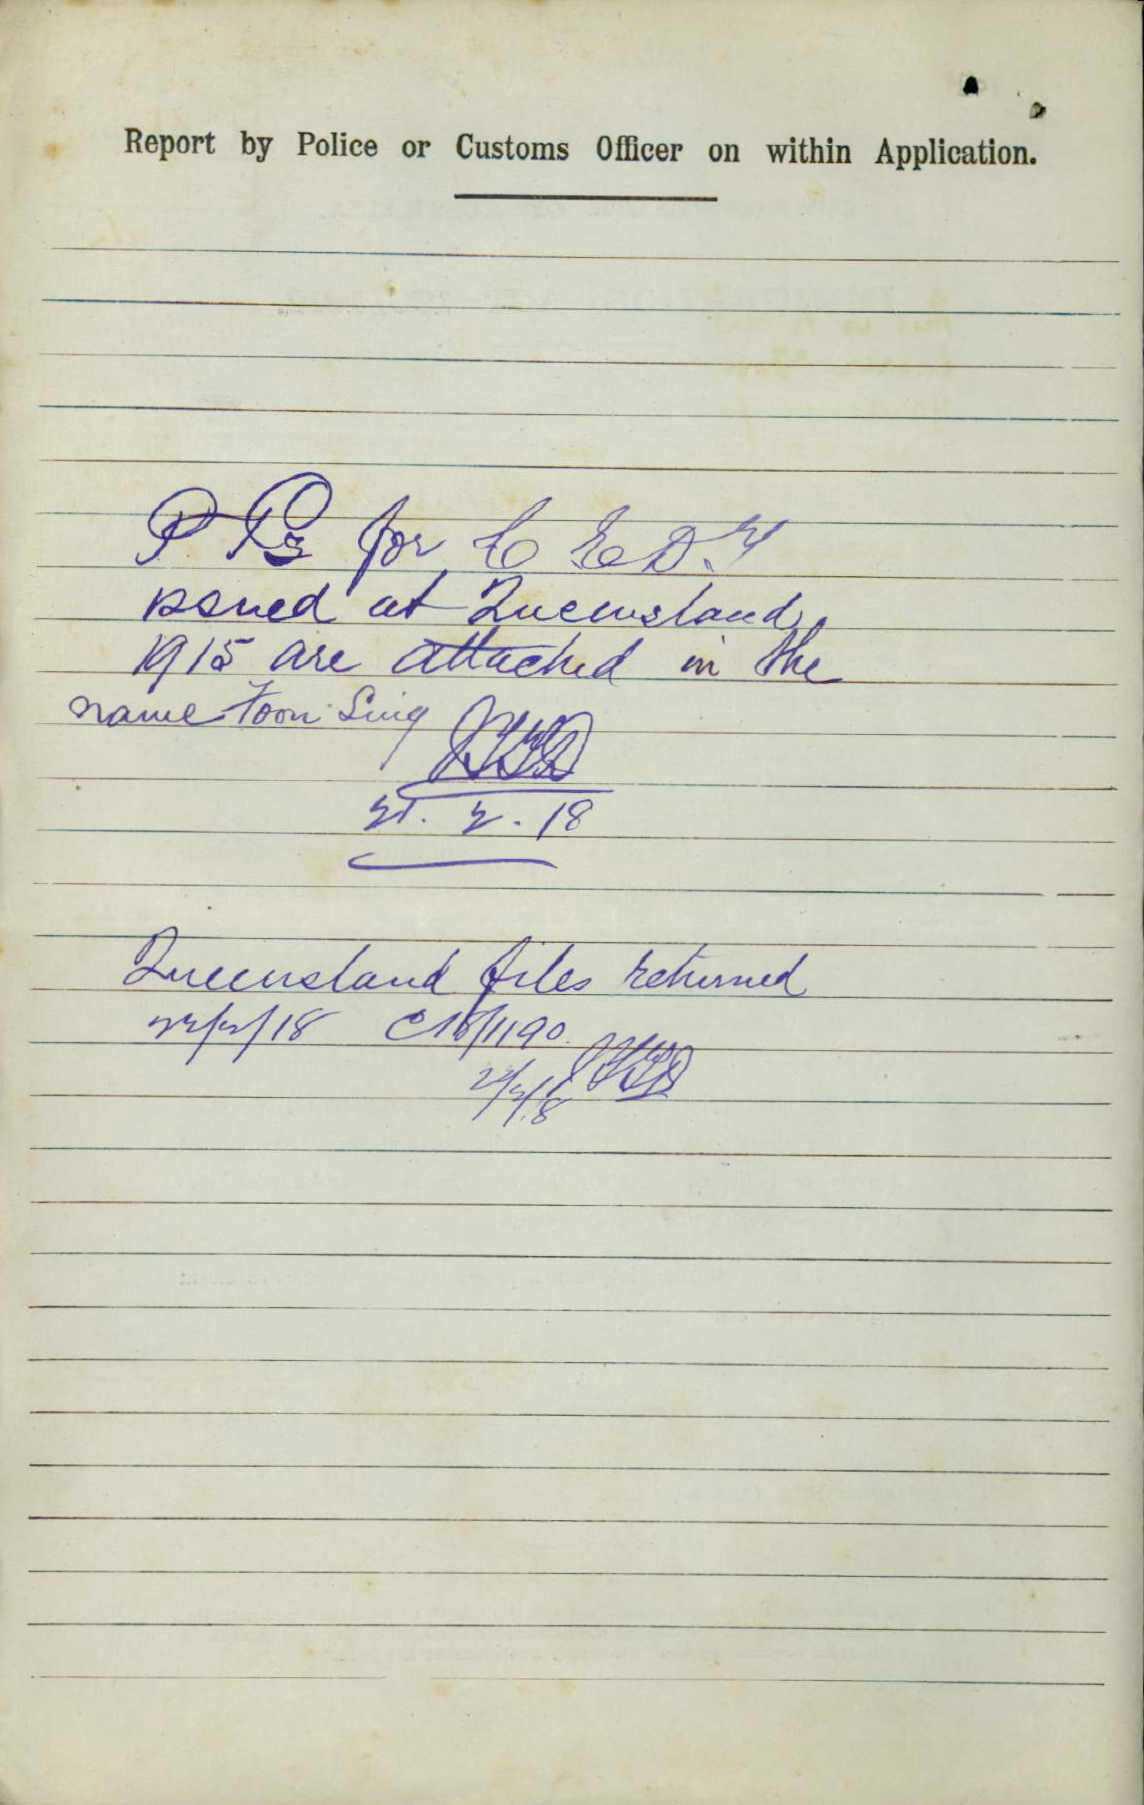 Report by Police or Customs Officer on within Application.
P Ps for C E D T
issued at Queensland,
1915 are attached in the
name Foon Sing
21. 2. 18
Queensland files returned
22/2/18 C18/1190
22/2/18